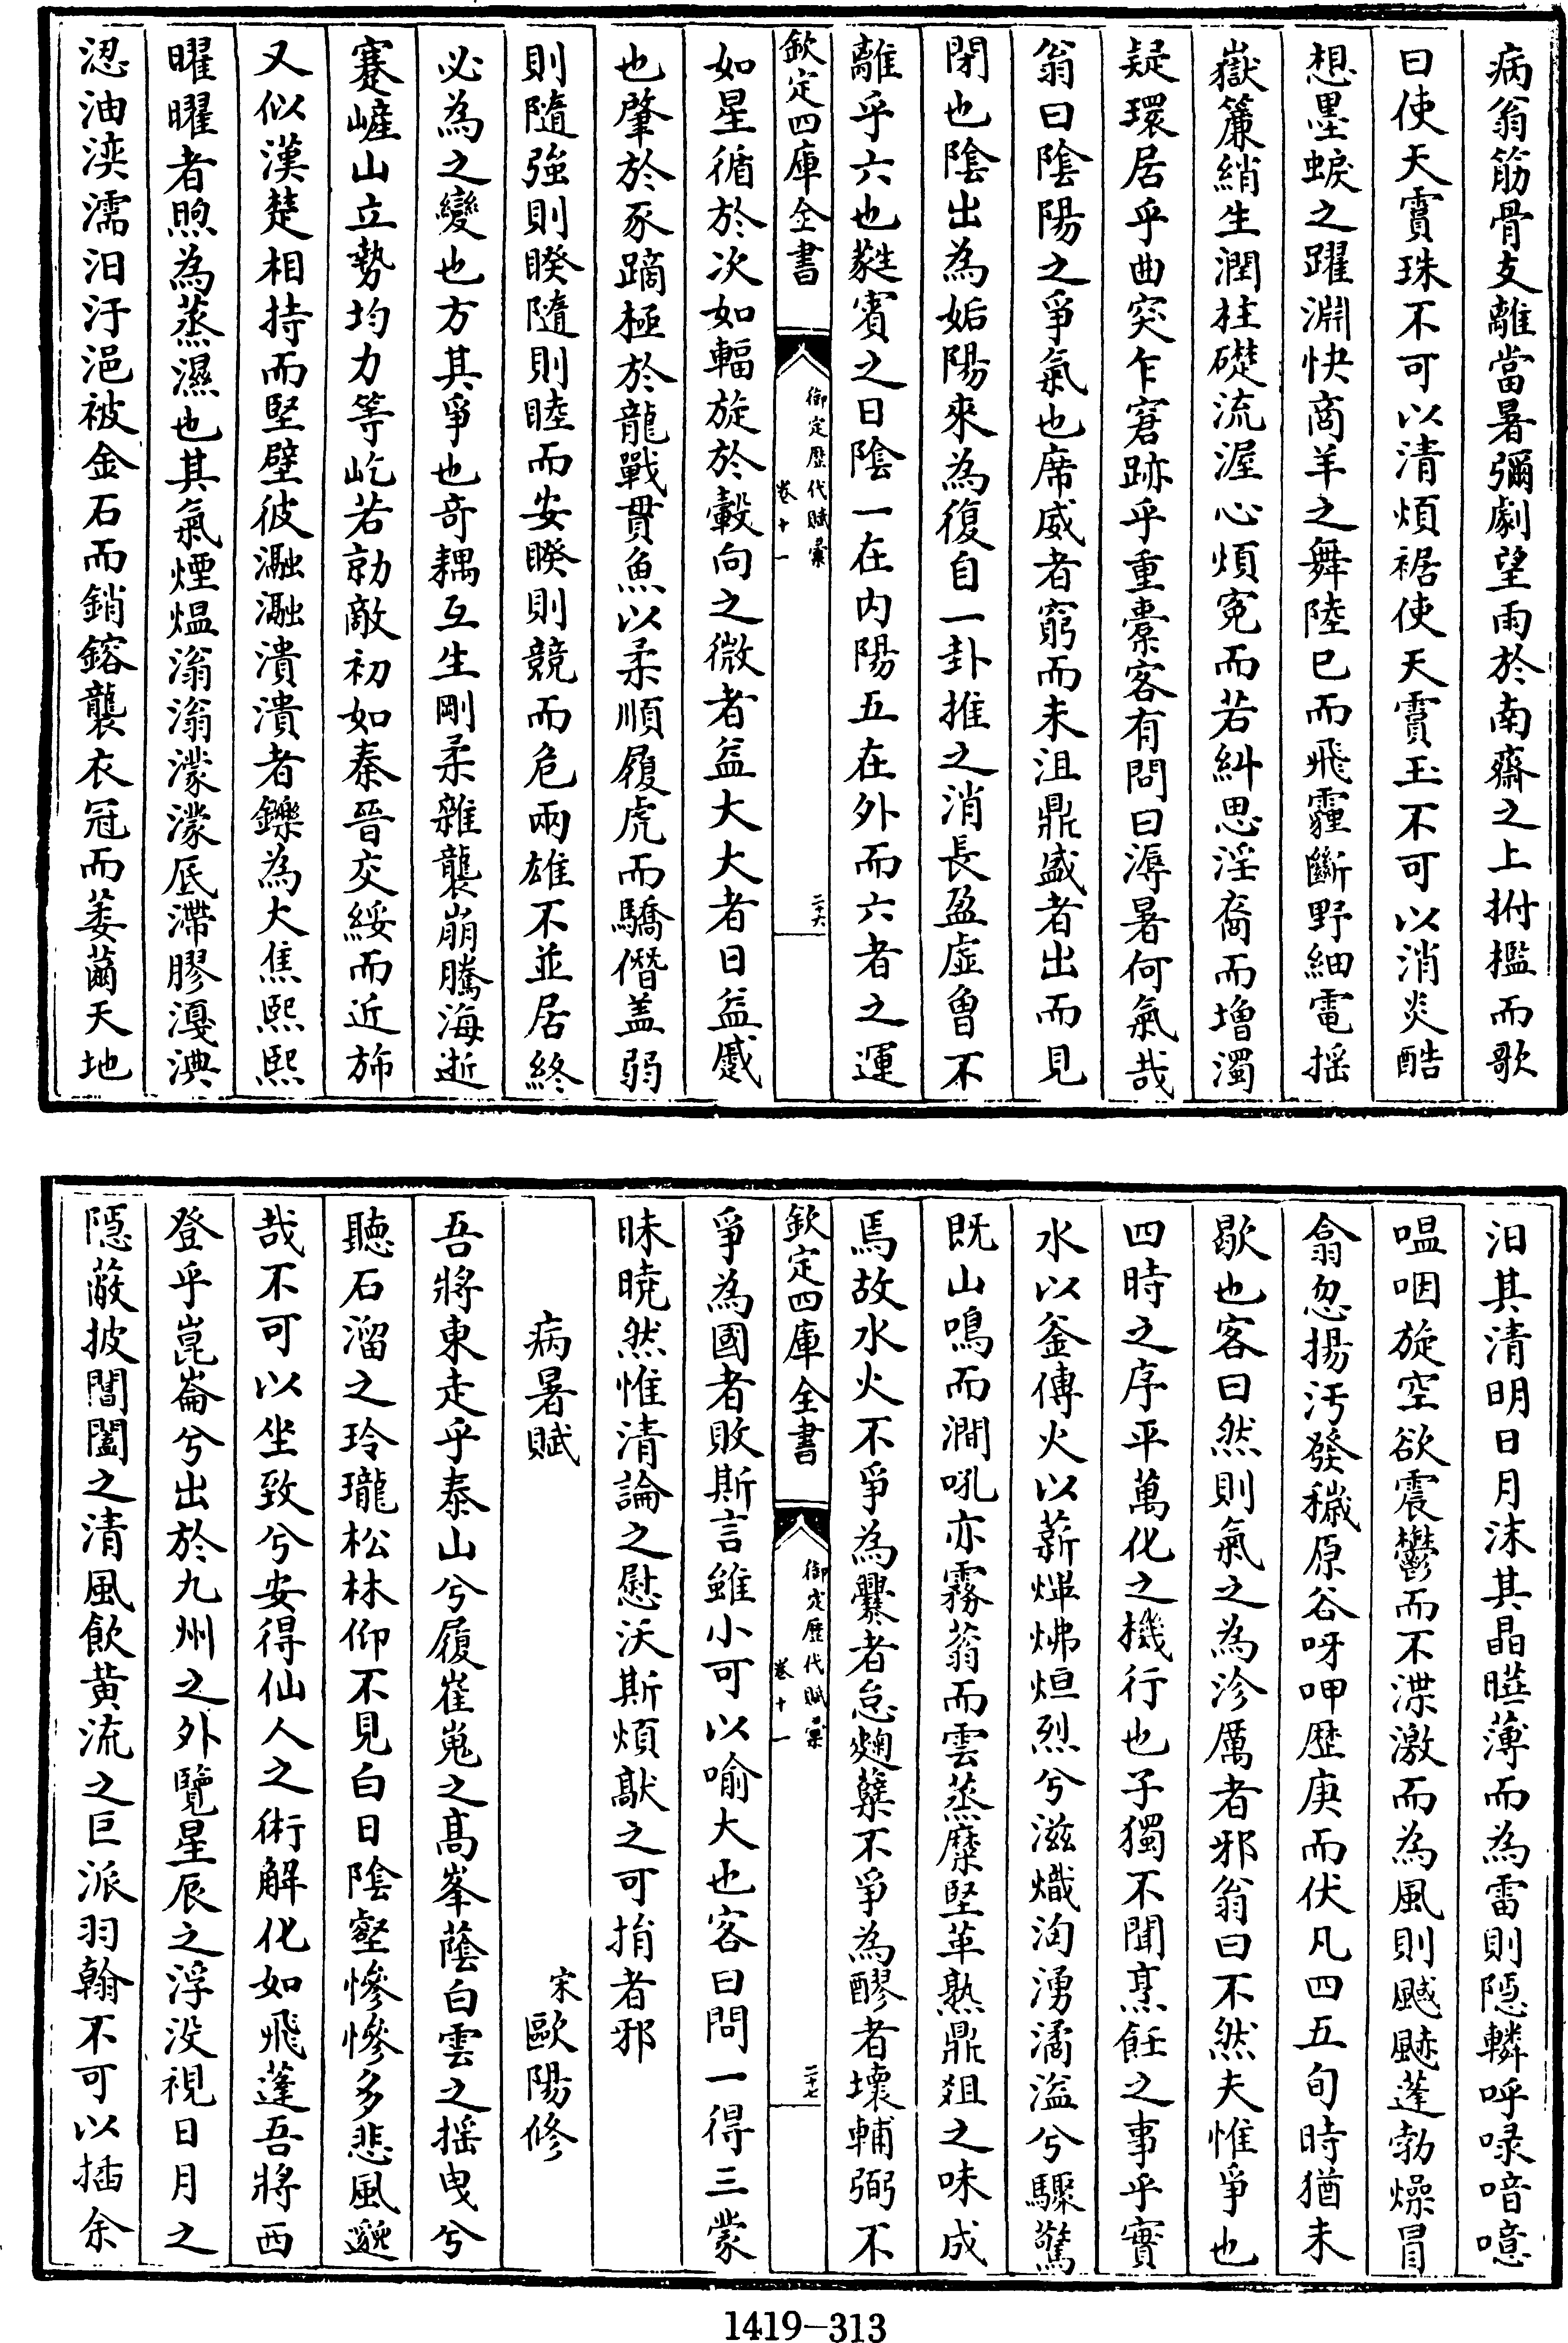 病翁筋骨支離當暑彌劇望雨於南齋之上拊檻而歌
曰使天雨珠不可以清煩裾使天雨玉不可以消炎酷
想墨蜧之躍淵快商羊之舞陸已而飛霾斷野細電揺
嶽簾綃生潤柱礎流渥心煩寃而若糾思淫裔而增濁
疑環居乎曲突乍窘跡乎重橐客有問曰溽暑何氣哉
翁曰陰陽之爭氣也席威者窮而未沮鼎盛者出而見
閉也陰出為姤陽來為復自一卦推之消長盈虛曾不
離乎六也蕤賓之日陰一在内陽五在外而六者之運
欽定四庫全書
御定歴代賦彙
卷十一
二十六
如星循於次如輻旋於轂向之微者益大大者日益蹙
也肇於豕蹢極於龍戰貫魚以柔順履虎而驕僭盖弱
則隨強則暌隨則睦而安暌則競而危兩雄不並居終
必為之變也方其爭也奇耦互生剛柔雜襲崩騰海逝
蹇嵼山立勢均力等屹若勍敵初如秦晉交綏而近斾
又似漢楚相持而堅壁彼瀜瀜潰潰者鑠為大焦熙熙
曜曜者煦為蒸濕也其氣煙煴滃滃濛濛底滯膠戞淟
涊油渜濡汨汙浥被金石而銷鎔襲衣冠而萎薾天地
汨其清明日月沬其晶曀薄而為雷則隱轔呼㖨喑噫
嗢咽旋空欲震鬱而不渫激而為風則颰䬅蓬勃燥冒
翕忽揚汚發穢原谷呀呷歴庚而伏凡四五旬時猶未
歇也客曰然則氣之為沴厲者邪翁曰不然夫惟爭也
四時之序平萬化之機行也子獨不聞烹飪之事乎實
水以釜傅火以薪煇炥烜烈兮滋熾泃湧潏溢兮驟驚
既山鳴而澗吼亦霧蓊而雲蒸糜堅革熟鼎俎之味成
焉故水火不爭為爨者怠麴糵不爭為醪者壞輔弼不
欽定四庫全書
御定歴代賦彙
卷十一
二十七
爭為國者敗斯言雖小可以喻大也客曰問一得三蒙
昧曉然惟清論之慰沃斯煩歊之可捐者邪
病暑賦 宋歐陽修
吾將東走乎泰山兮履崔嵬之髙峯蔭白雲之揺曳兮
聽石溜之玲瓏松林仰不見白日陰壑慘慘多悲風邈
哉不可以坐致兮安得仙人之術解化如飛蓬吾將西
登乎崑崙兮出於九州之外覽星辰之浮没視日月之
隱蔽披閶闔之清風飲黄流之巨派羽翰不可以插余
1419-313